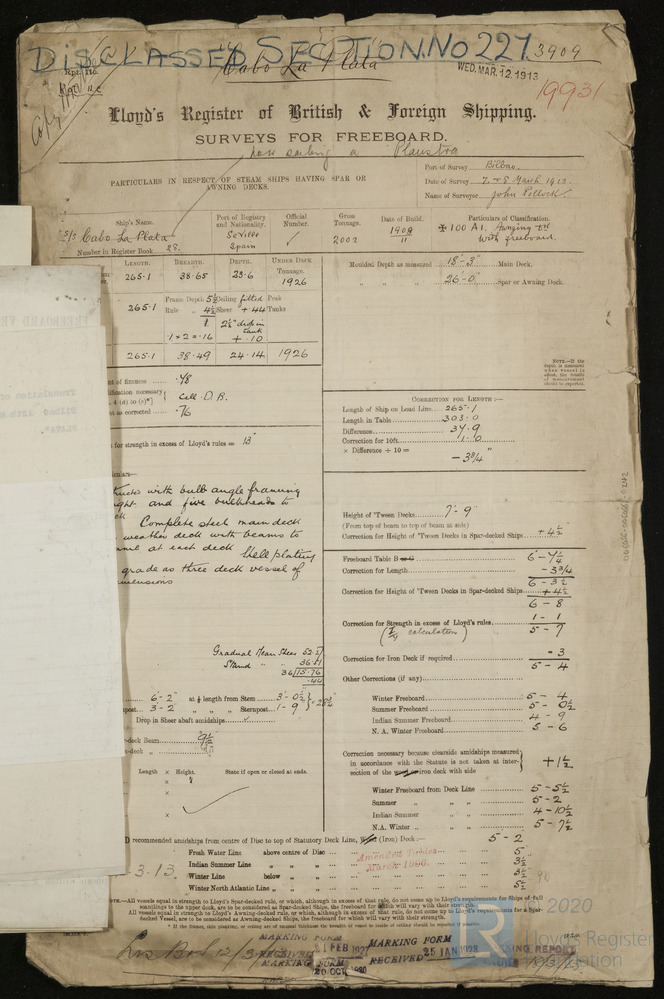 DISCLASSED SECTION. No 227. 3909
Cabo La Plata
Rpt. No.
Copy
WED. MAR. 12 1913
19931
Lloyd's Register of British & Foreign Shipping.
SURVEYS FOR FREEBOARD.
now sailing as Plaustra
PARTICULARS IN RESPECT OF STEAM SHIPS HAVING SPAR OR
AWNING DECKS.
Port of Survey Bilbao
Date of Survey 7 & 8 March 1913.
Name of Surveyor John Pollock
Ship's Name. Port of Registry and Nationality. Official Number. Gross Tonnage. Date of Build. Particulars of Classification.
S/S Cabo La Plata Seville Spain 2002 1908 11 100 A1. Awning dk with freeboard.
Number in Register Book 28.
LENGTH. BREADTH. DEPTH. UNDER DECK Tonnage.
265.1 38.65 23.6 1926
Moulded Depth as measured 18'-3" Main Deck.
" " " 26'-0" Spar or Awning Deck.
Frame Depth 5½ Ceiling fitted Peak
265.1 Rule " 4½ Sheer +.44 Tanks
1 2½" deck in tank
.1 × 2 = .16 + .10
265.1 38.49 24.14 1926
NOTE.—If the depth is measured when vessel is afloat, the details of measurement should be reported.
of fineness .78
necessary Cell. D. B.
as corrected .76
for strength in excess of Lloyd's rules = 13"
CORRECTION FOR LENGTH :—
Length of Ship on Load Line 265.1
Length in Table 303.0
Difference 37.9
Correction for 10ft. 1.0
× Difference ÷ 10 = -3¾"
with bulb angle framing
and five bulkheads to
Complete steel main deck
weather deck with beams to
at each deck Shell plating
grade as three deck vessel of
dimensions
Height of 'Tween Decks 7'-9"
(From top of beam to top of beam at side)
Correction for Height of 'Tween Decks in Spar-decked Ships +4½"
Freeboard Table B 6-7¼
Correction for Length -3¾
6-3½
Correction for Height of 'Tween Decks in Spar-decked Ships +4½
6-8
Correction for Strength in excess of Lloyd's rules 1-1
5-7
Correction for Iron Deck if required -3
5-4
Other Corrections (if any)
Gradual Mean Sheer 52.27
Stand " " 36.51
36/15.76
.44
6'-2" at ⅛ length from Stem 3'-0½"
3-2 " " Sternpost 1-9
Drop in Sheer abaft amidships
-deck Beam 9½
-deck "
Length × Height. State if open or closed at ends.
Winter Freeboard 5-4
Summer Freeboard 5-0½
Indian Summer Freeboard 4-9
N. A. Winter Freeboard 5-6
Correction necessary because clearside amidships measured
in accordance with the Statute is not taken at intersection of the wood or iron deck with side +1½
Winter Freeboard from Deck Line 5-5½
Summer " " 5-2
Indian Summer " " 4-10½
N.A. Winter " " 5-7½
D recommended amidships from centre of Disc to top of Statutory Deck Line, Wood (Iron) Deck:— 5-2
Fresh Water Line above centre of Disc 5
Indian Summer Line " " 3½
Winter Line below " 3½
Winter North Atlantic Line " " 5½
Amended Tables
March 1906.
3.13.
NOTE.—All vessels equal in strength to Lloyd's Spar-decked rule, or which, although in excess of that rule, do not come up to Lloyd's requirements for Ships of full
scantlings to the upper deck, are to be considered as Spar-decked Ships, the freeboard for which will vary with their strength.
All vessels equal in strength to Lloyd's Awning-decked rule, or which, although in excess of that rule, do not come up to Lloyd's requirements for a Spar-
decked Vessel, are to be considered as Awning-decked Ships, the freeboard for which will vary with their strength.
MARKING FORM
RECEIVED FEB 1927
MARKING FORM
RECEIVED 25 JAN 1928
20 OCT 1920
© 2020
Lloyd's Register
Foundation